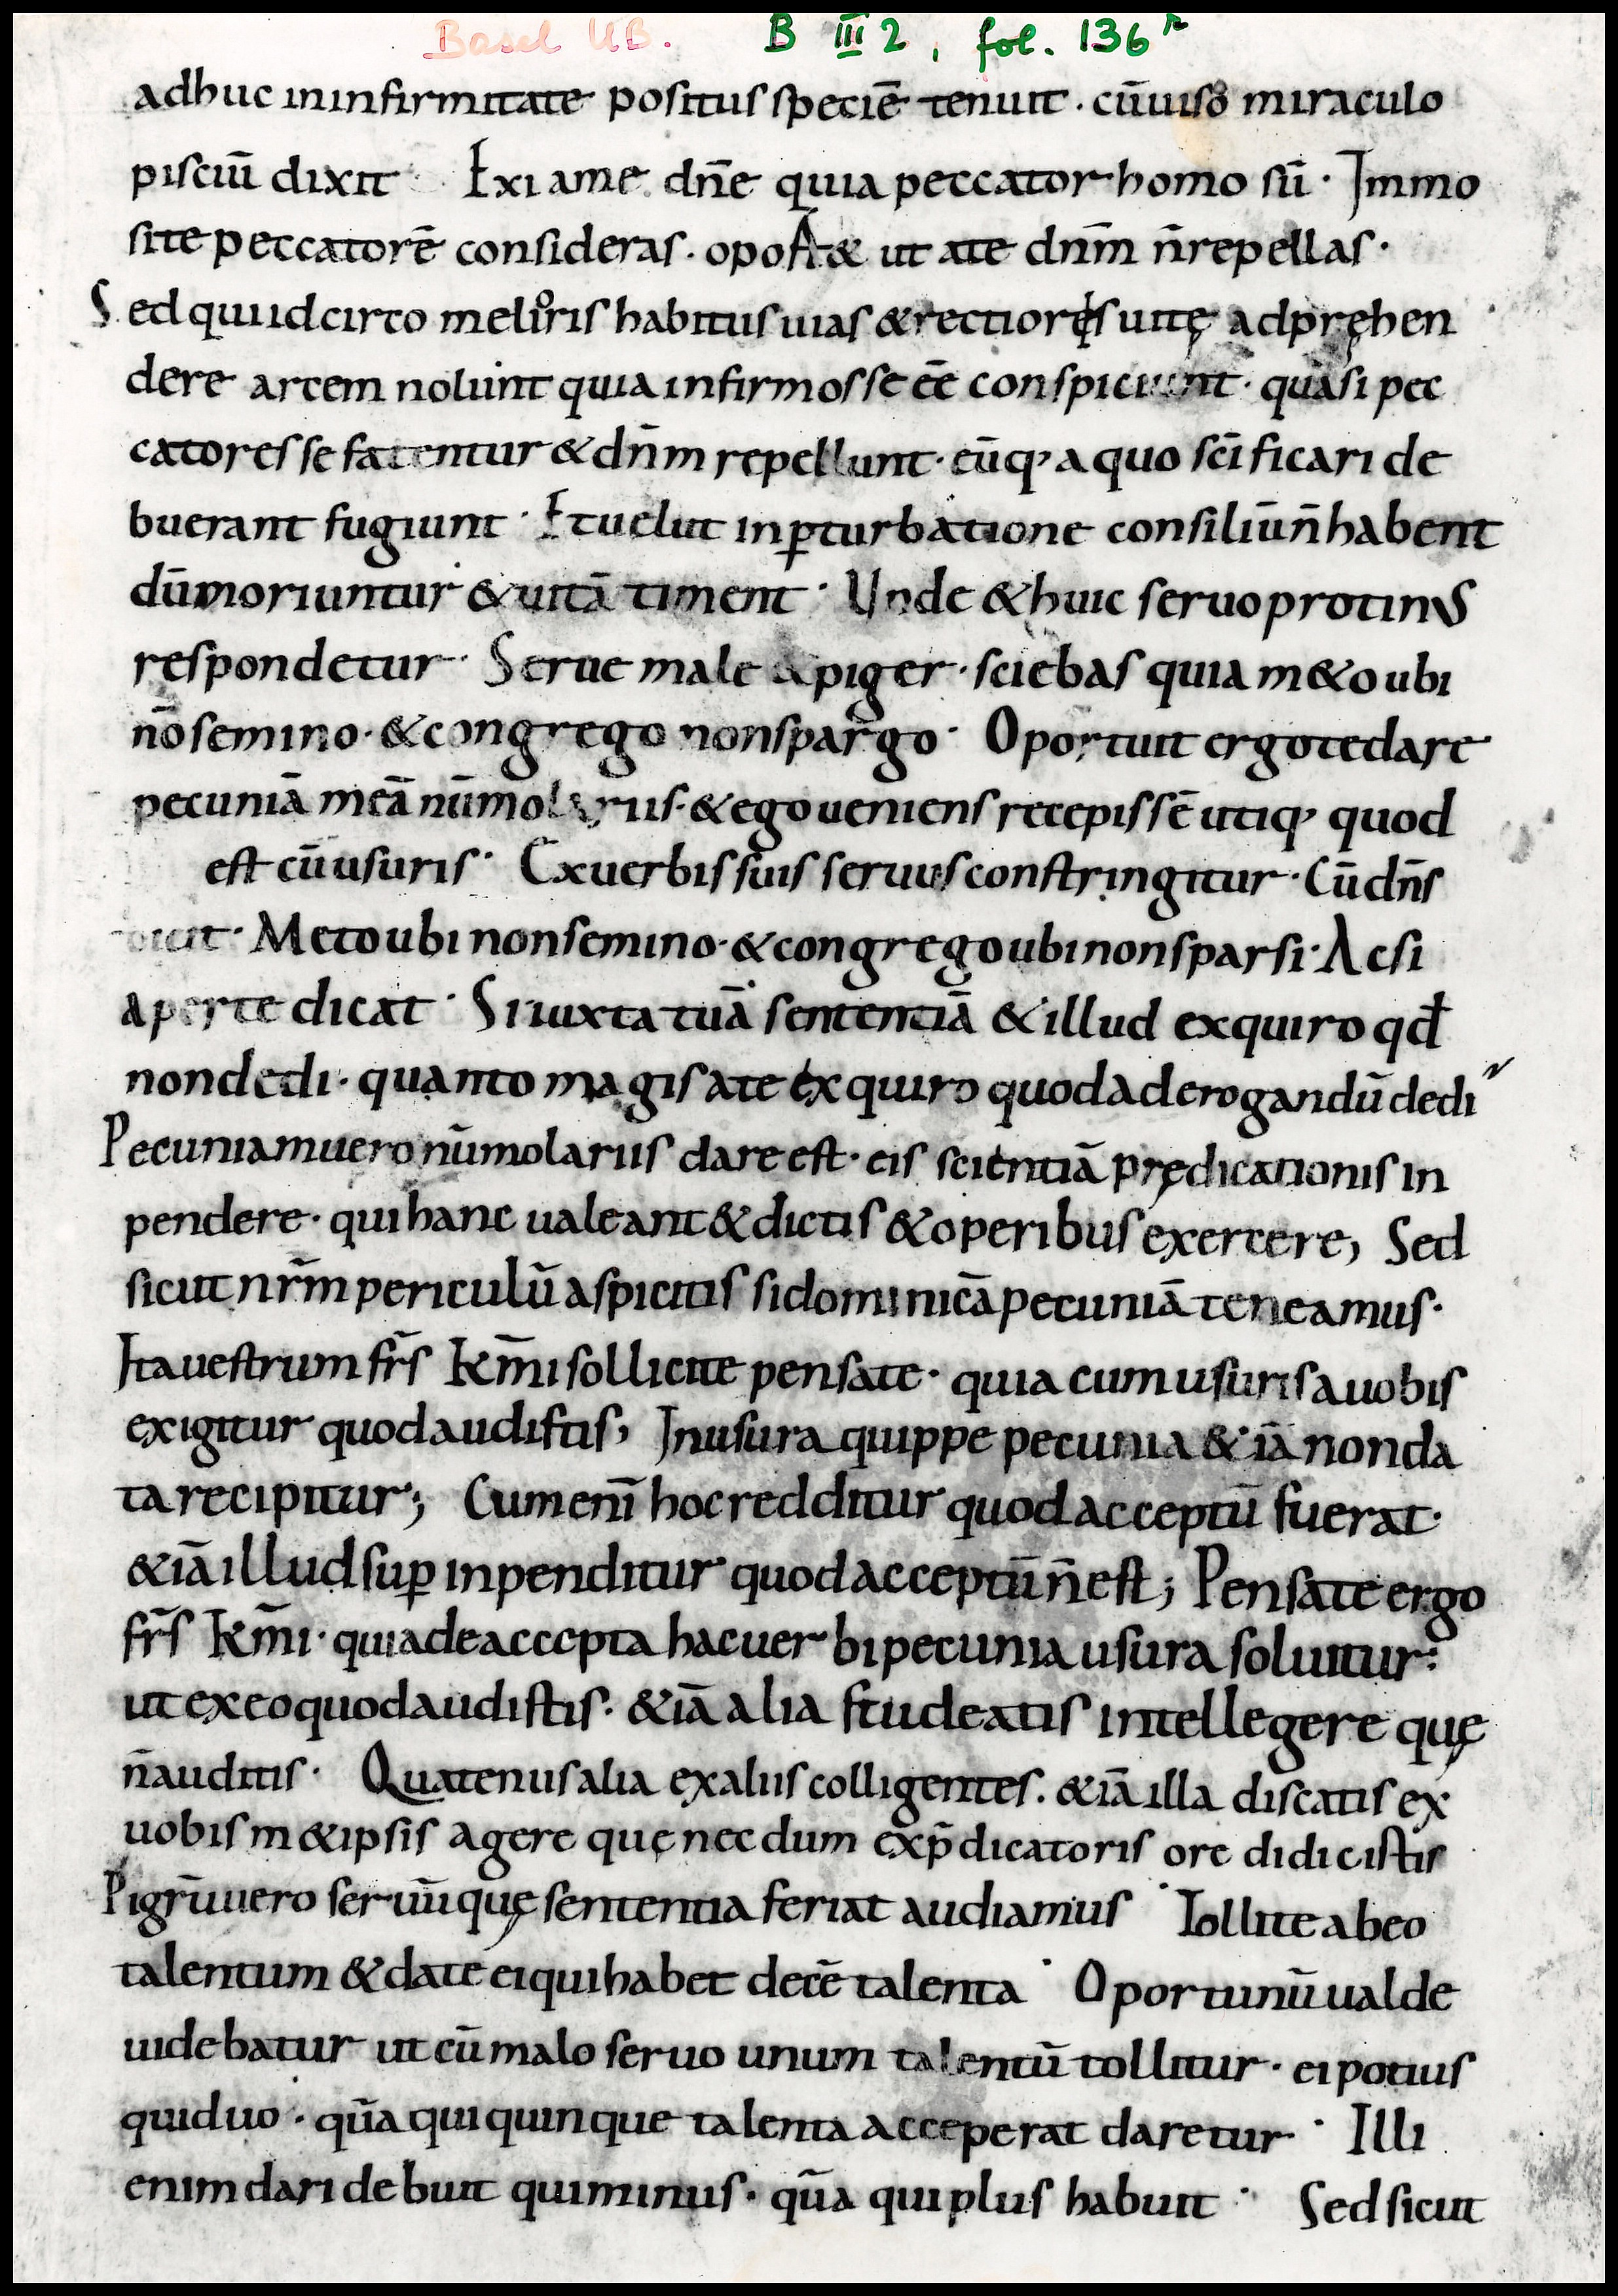 Basel UB. B III 2, fol. 136r
adhuc in infirmitate positus speciē tenuit · cū uiso miraculo
pisciū dixit · Exi a me dn̄e quia peccator homo sū · Immo
si te peccatorē consideras · oportet ut a te dn̄m n̄ repellas ·
Sed qui idcirco melioris habitus uias & rectiores uitę adpręhen
dere artem nolunt quia infirmos se ēē conspiciunt · quasi pec
catores se fatentur & dn̄m repellunt · eūq, a quo sc̄ificari de
buerant fugiunt · Et uelut in ꝑturbatione consiliū n̄ habent
dū moriuntur & uitā timent · Unde & huic seruo protinus
respondetur · Serue male & piger · sciebas quia m&o ubi
nō semino · & congrego non spargo · Oportuit ergo te dare
pecuniā meā nūmolariis · & ego ueniens recepissē utiq, quod
est cū usuris · Ex uerbis suis seruus constringitur · Cū dn̄s
dicit · Meto ubi non semino · & congrego ubi non sparsi · Ac si
aperte dicat · Si iuxta tuā sententiā & illud exquiro qđ
non dedi · quanto magis a te exquiro quod ad erogandū dedi
Pecuniam uero nūmolariis dare est · eis scientiā prędicationis in
pendere · qui hanc ualeant & dictis & operibus exercere, Sed
sicut nr̄m periculū aspicitis si dominicā pecuniā teneamus ·
Ita uestrum fr̄s km̄i sollicite pensate · quia cum usuris a uobis
exigitur quod audistis, In usura quippe pecunia &iā non da
ta recipitur; Cum enī hoc redditur quod acceptū fuerat ·
&iā illud suꝑ inpenditur quod acceptū n̄ est; Pensate ergo
fr̄s km̄i · quia de accepta hac uerbi pecunia usura soluitur :
ut ex eo quod audistis · &iā alia studeatis intellegere quę
n̄ auditis · Quatenus alia ex aliis colligentes · &iā illa discatis ex
uobism&ipsis agere quę necdum ex p̄dicatoris ore didicistis
Pigrū uero seruū quę sententia feriat audiamus · Tollite ab eo
talentum & date ei qui habet decē talenta · Oportunū ualde
uidebatur ut cū malo seruo unum talentū tollitur · ei potius
qui duo · quā qui quinque talenta acceperat daretur · Illi
enim dari debuit qui minus · quā qui plus habuit · Sed sicut